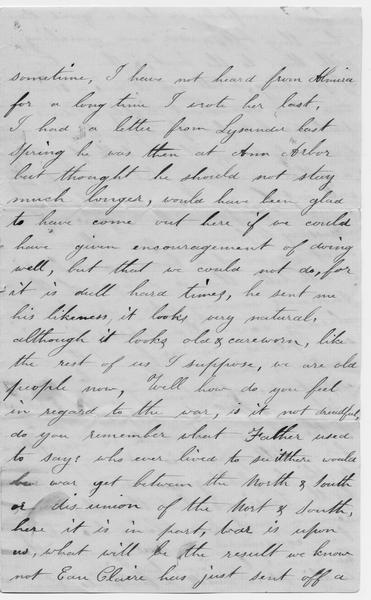 sometime, I have not heard from Almira
for a long time I wrote her last,
I had a letter from Lysander last
Spring he was then at Ann Arbor
but thought he should not stay
much longer, would have been glad
to have come out here if we could
have given encouragement of doing
well, but that we could not do, for
it is dull hard times, he sent me
his likeness, it looks very natural,
although it looks old & careworn, like
the rest of us I suppose, we are old
people now, Well how do you feel
in regard to the war, is it not dreadful,
do you remember what Father used
to say; who ever lived to see it there would
be war yet between the North & South
or dis union of the Nort & South,
here it is in part, war is upon
us, what will be the result we know
not Eau Claire has just sent off a